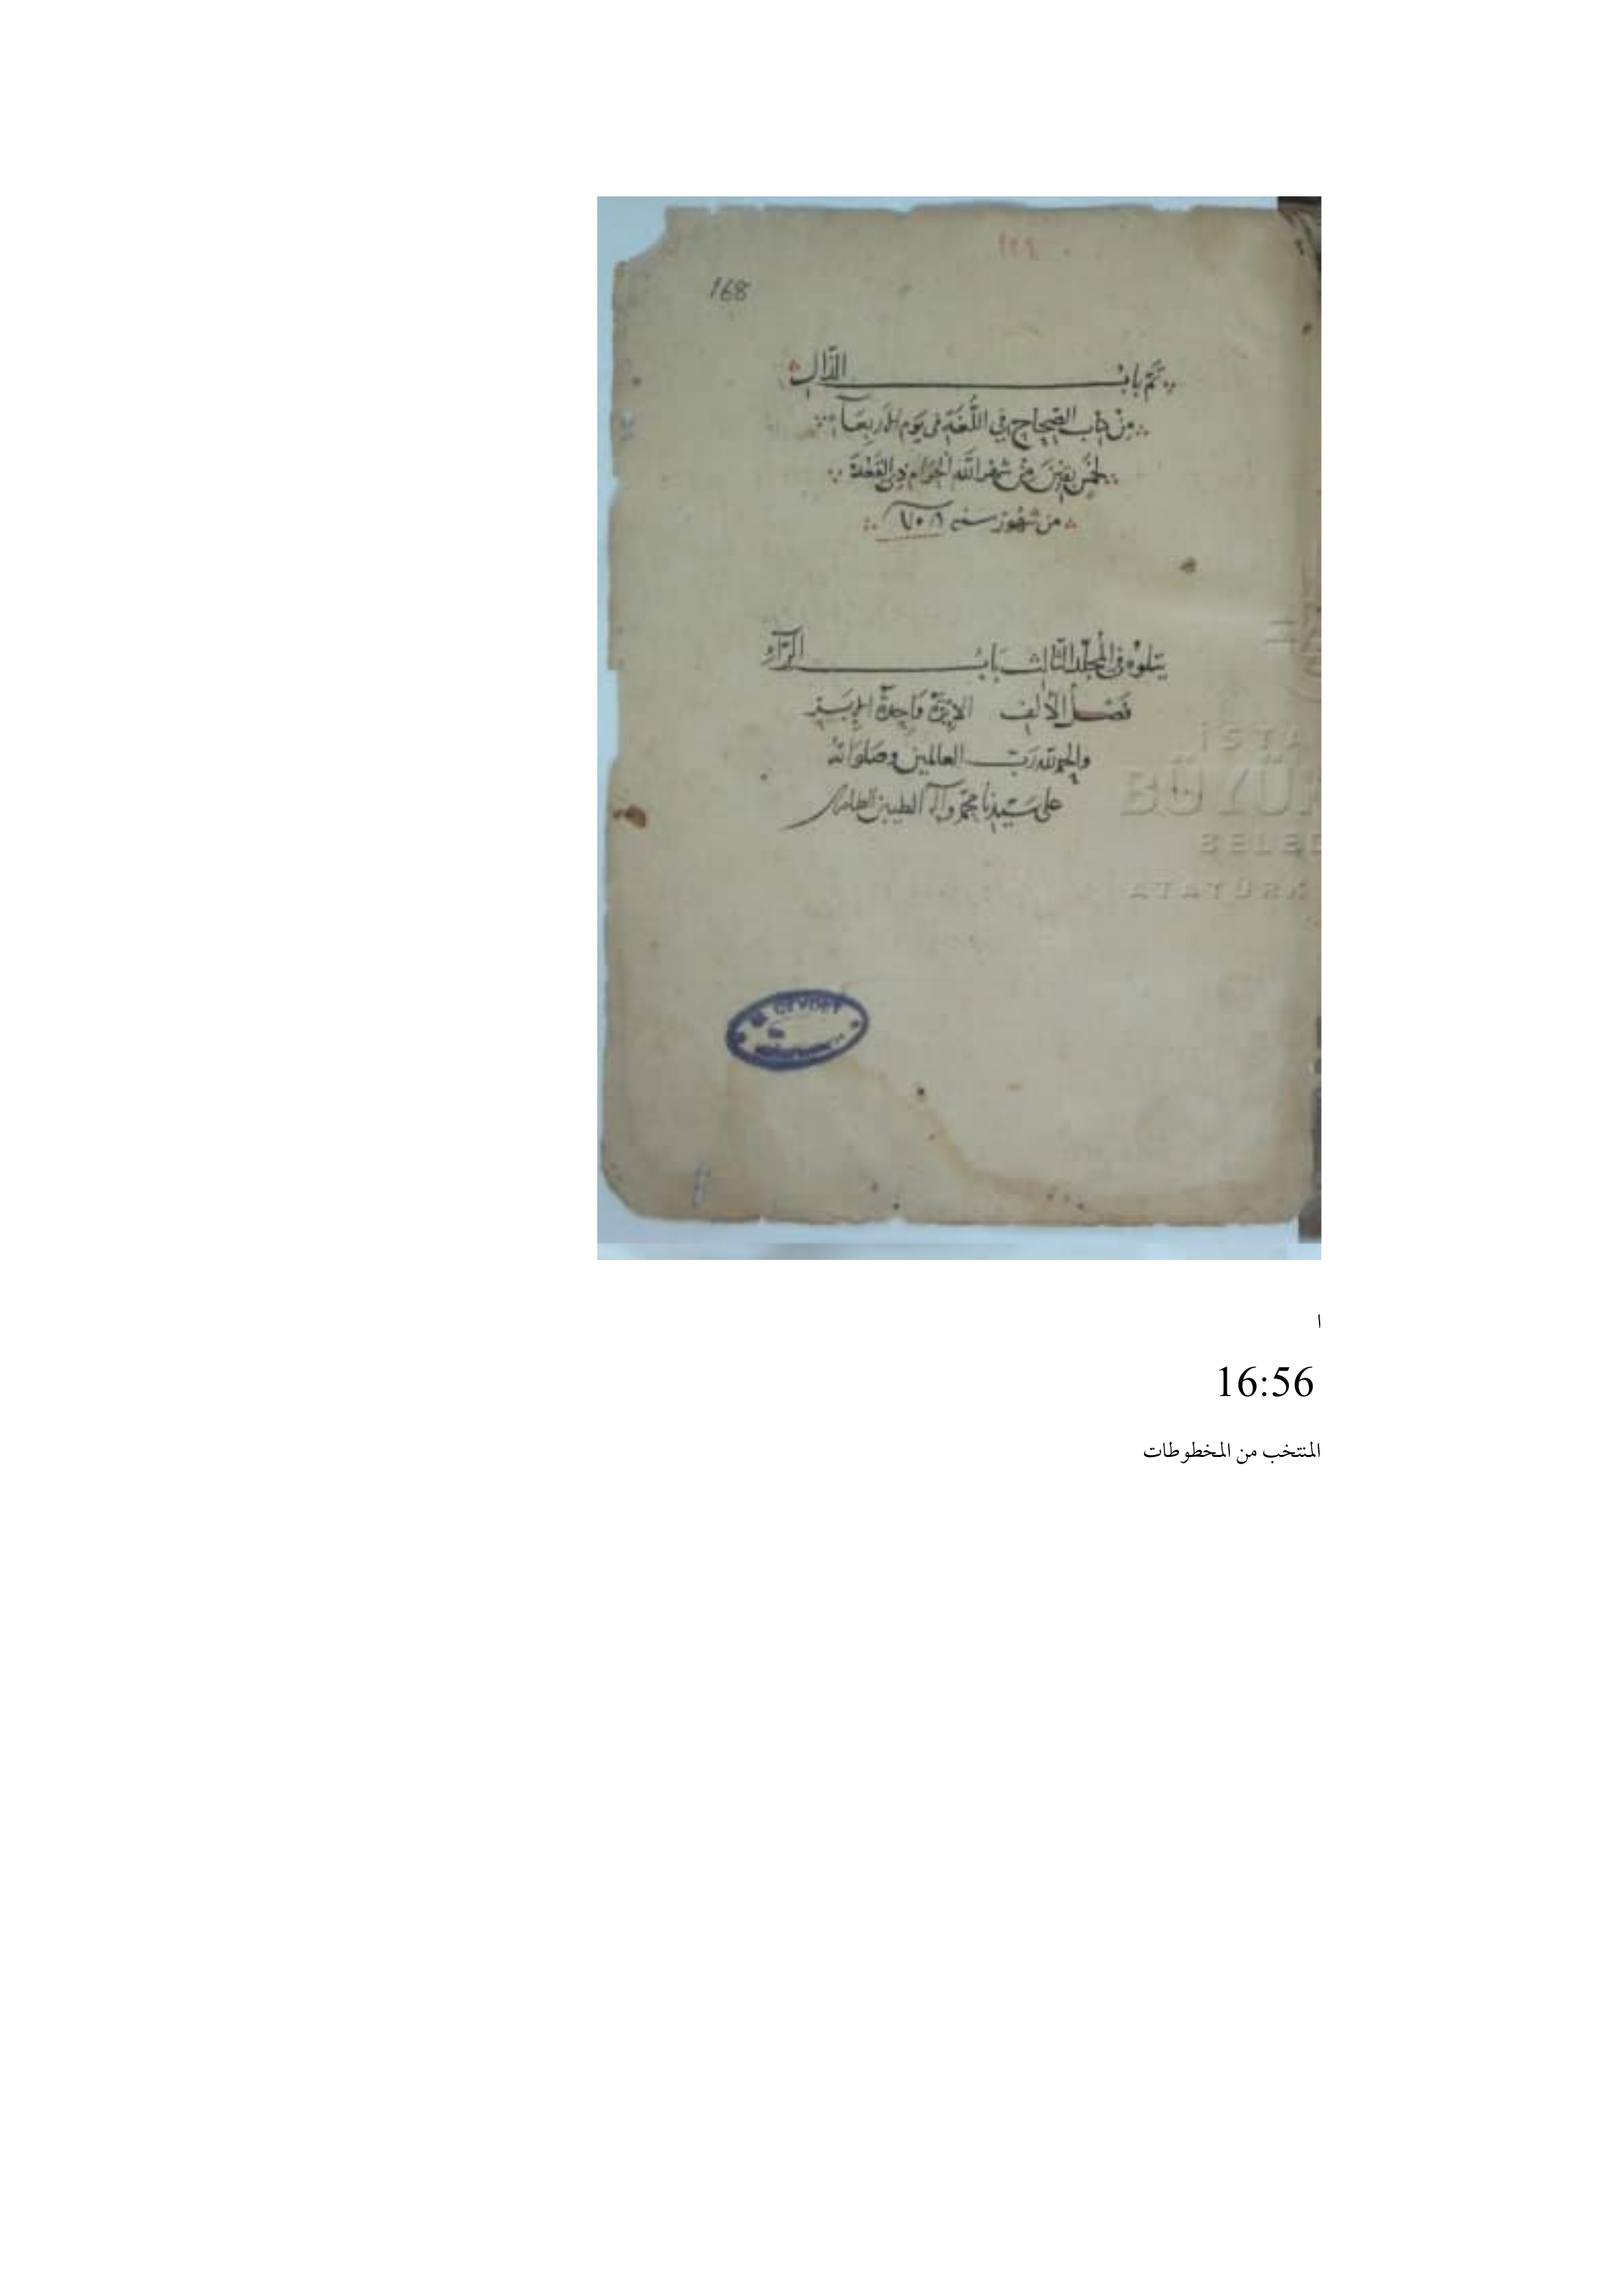 ١٢٩
168
تَمّ بابُ الذال
من كتاب الصحاح في اللُّغَة في يوم الأربعآ
لخمس بقين من شهر الله الحرام ذي القعدة
من شهور سنه
يتلوه في المجلد الثالث بابُ الرّآء
فَصْلُ الألف الإبرة واحدة الإبر
والحمد لله ربّ العالمين وصلواته
على سيّدنا محمّد وآله الطيبين الطاهرين
İSTA
BÜYÜK
BELED
ATATÜRK
CEVDET
ا
16:56
المنتخب من المخطوطات